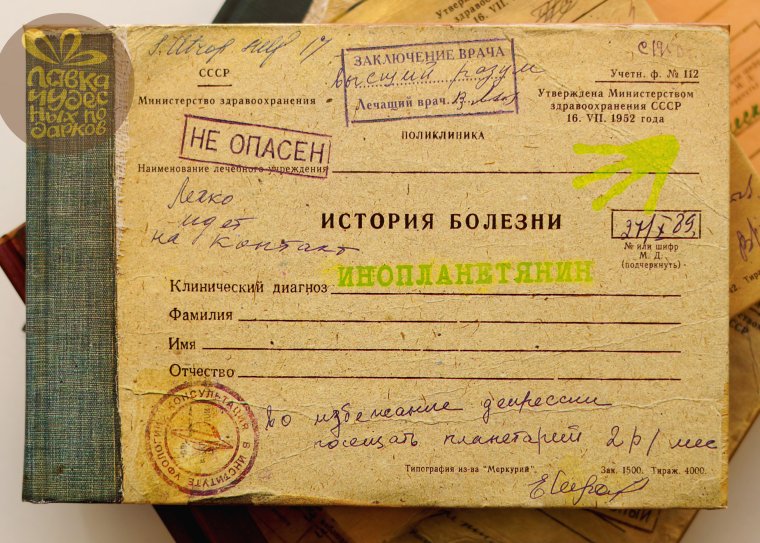 Лавка
чудес
ных по
дарков
СССР
Министерство здравоохранения
ЗАКЛЮЧЕНИЕ ВРАЧА
высший разум
Лечащий врач.
Учетн. ф. № 112
Утверждена Министерством
здравоохранения СССР
16. VII. 1952 года
ПОЛИКЛИНИКА
НЕ ОПАСЕН
Наименование лечебного учреждения
Легко
идет
на контакт
ИСТОРИЯ БОЛЕЗНИ
27/X 89.
№ или шифр
М. Д.
(подчеркнуть)
Клинический диагноз ИНОПЛАНЕТЯНИН
Фамилия
Имя
Отчество
КОНСУЛЬТАЦИЯ В ИНСТИТУТЕ УФОЛОГИИ
Во избежание депрессии
посещать планетарий 2 р/мес
Типография из-ва "Меркурий". Зак. 1500. Тираж. 4000.